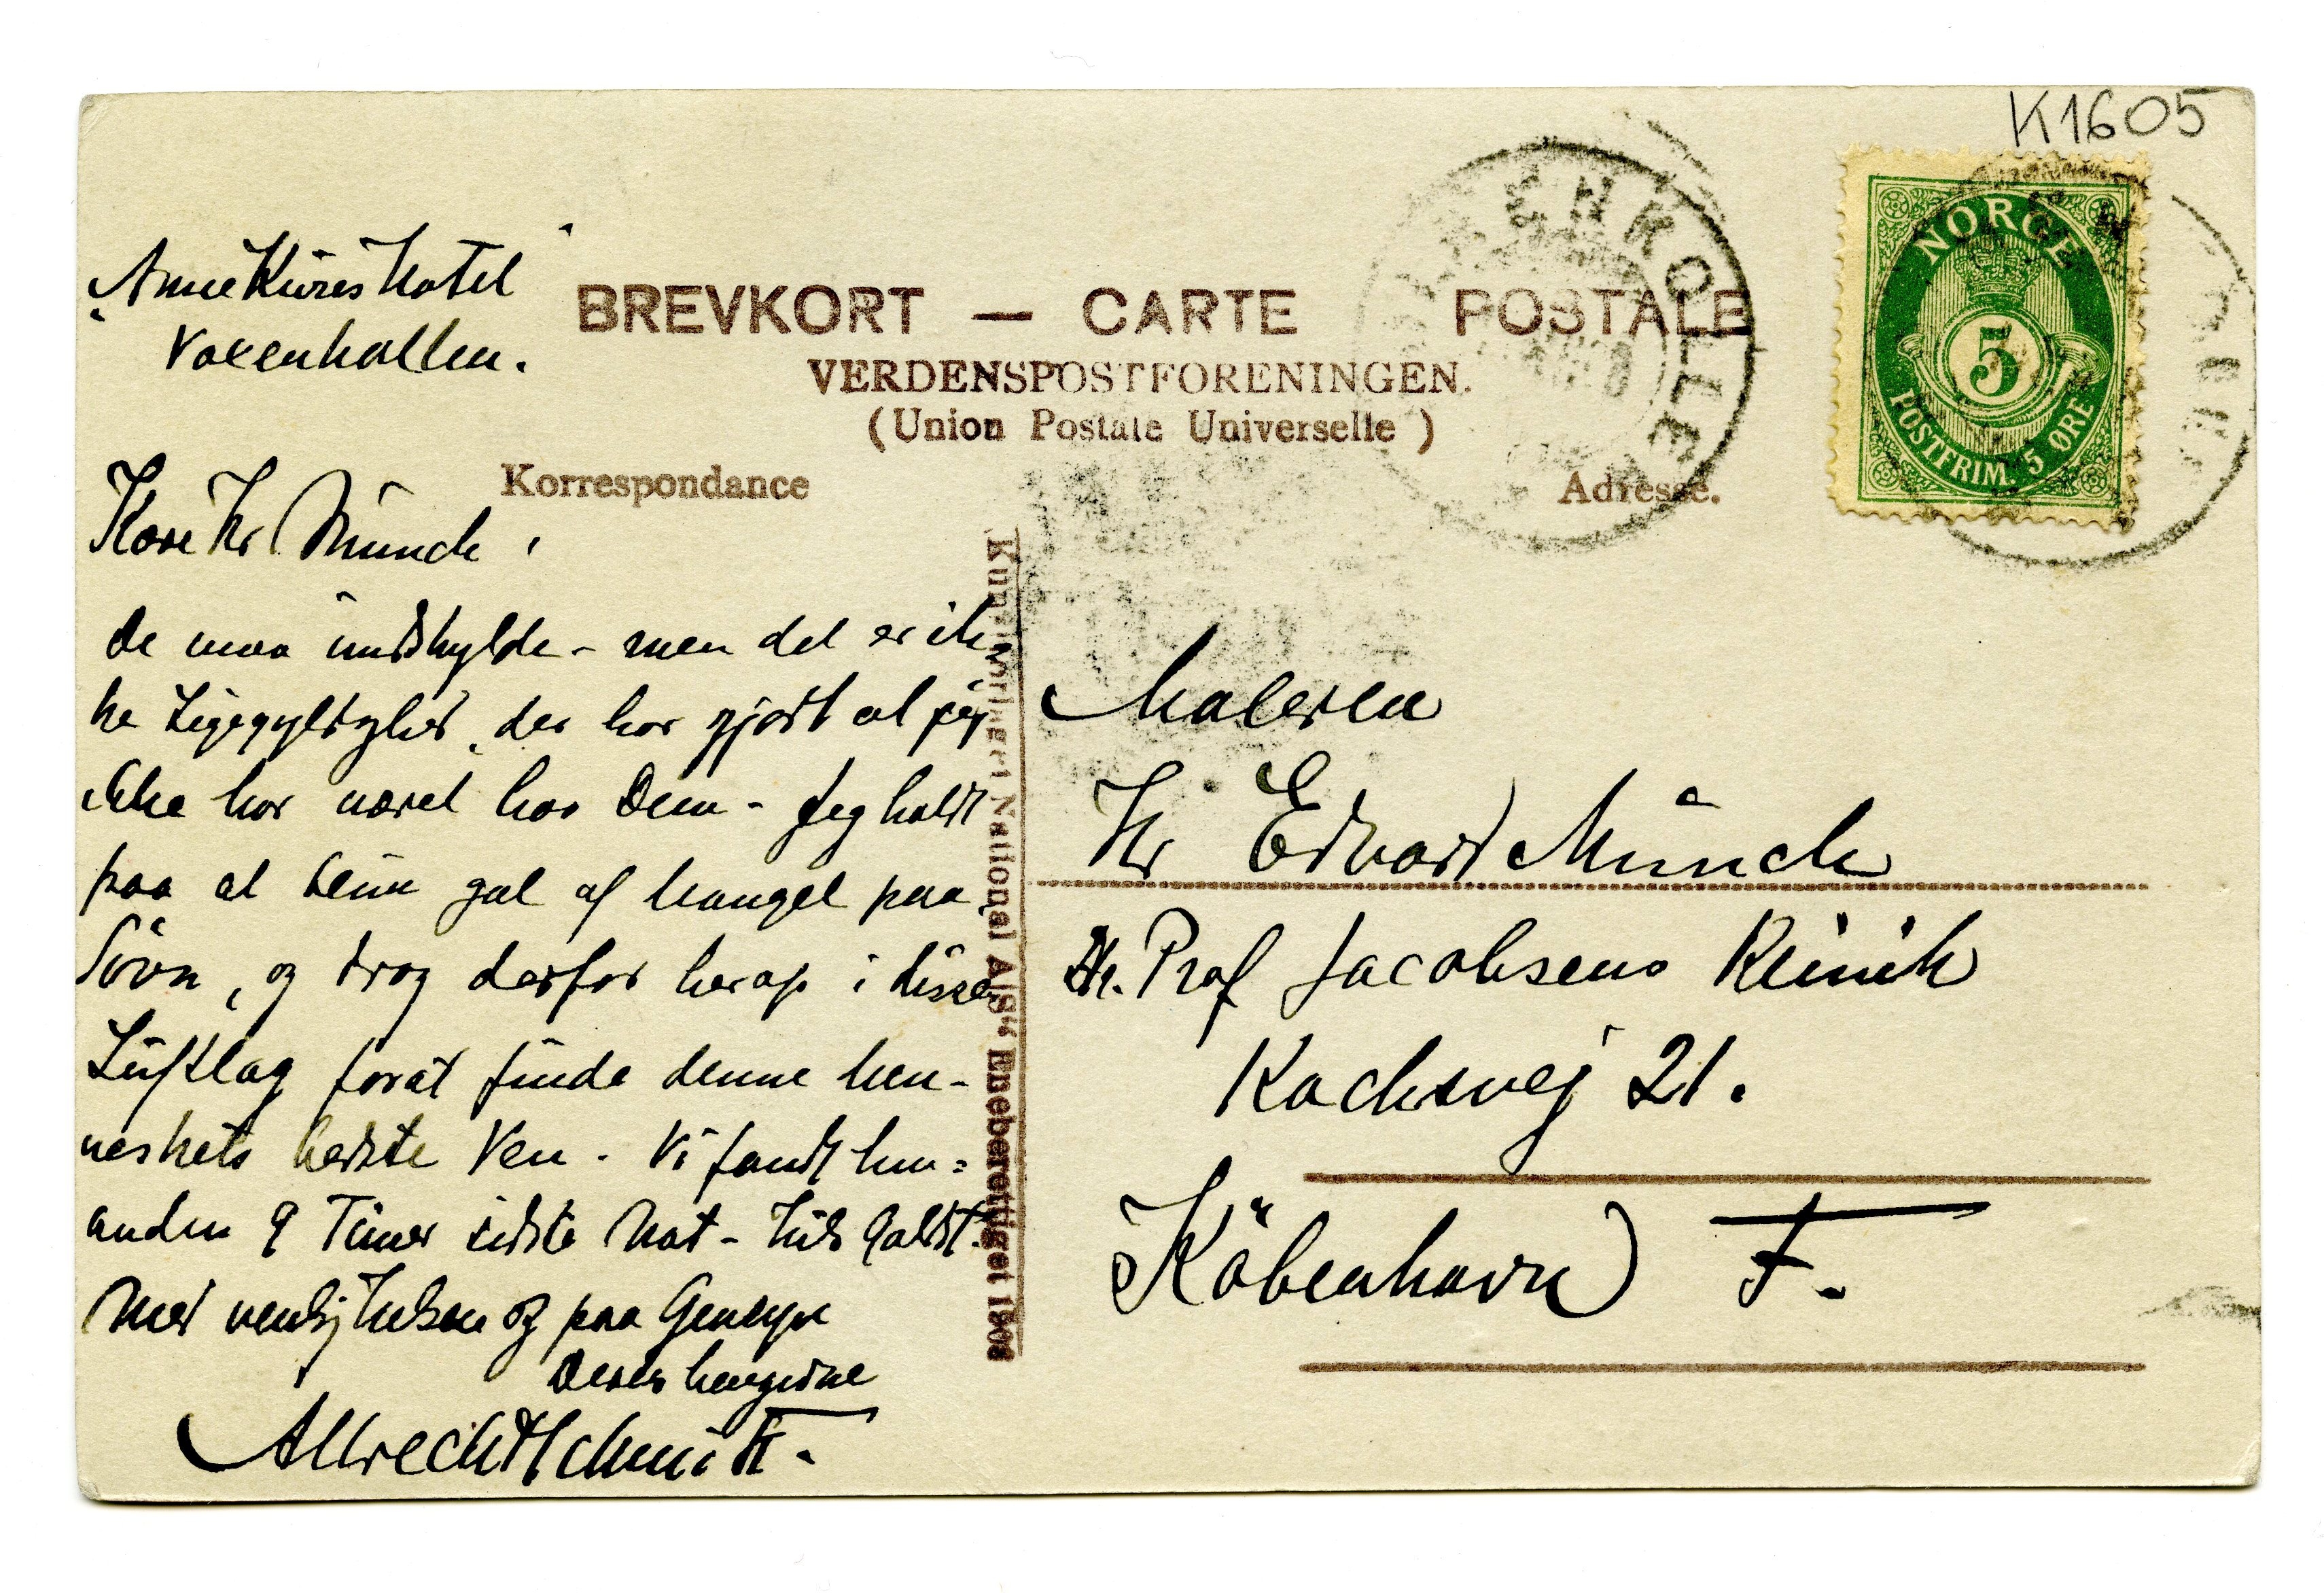 K1605
"Anne Kures Hotel"
Voxenkollen.
BREVKORT — CARTE POSTALE
VERDENSPOSTFORENINGEN.
(Union Postale Universelle)
Korrespondance
Adresse.
NORGE
5
POSTFRIM. 5 ØRE
ENKOLLEN
Kære Hr Münch,
De maa undskylde – men det er ik-
ke Ligegyldighed, der har gjort at jeg
ikke har været hos Dem – Jeg holdt
paa at blive gal af Mangel paa
Sövn, og drog derfor herop i disse
Luftlag forat finde denne Men-
neskets bedste Ven. Vi fandt hin-
anden 9 Timer sidste Nat –
Med venlig Hilsen og paa Gensyn
Deres hengivne
Albrecht Schmidt.
Kunstforlaget National A/S" Eneberettiget 1908
Maleren
Hr Edvard Münch
Prof Jacobsens Klinik
Kochsvej 21.
Köbenhavn F.